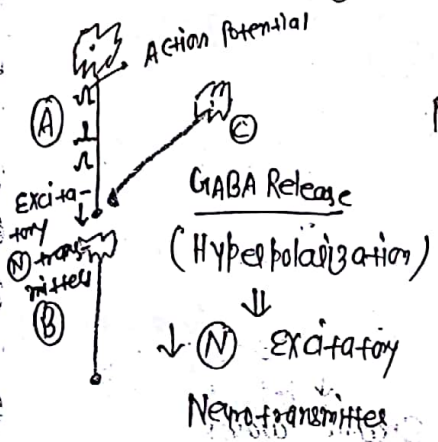 Action Potential
A
C
Excita-
tory
N trans-
mitter
B
GABA Release
(Hyperpolarization)
⇓
↓ N Excitatory
Neurotransmitter